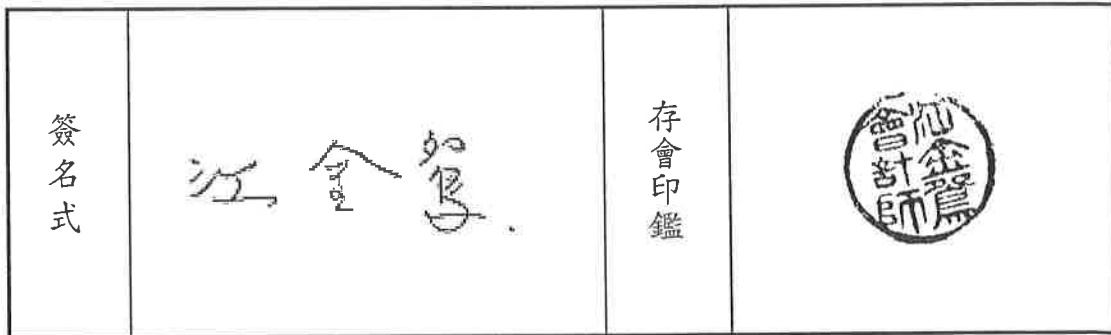 簽名式
江金鴛
存會印鑑
江金鴛
會計師